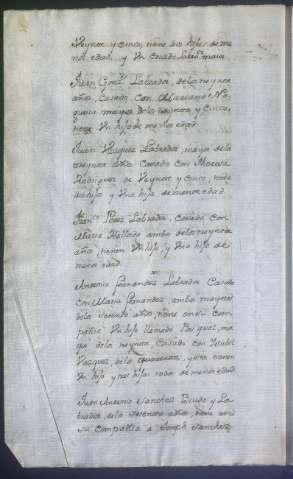 Veynte y cinco, tiene dos hijos de me
nor edad, y Un Criado
Juan Gonz.z Labrador, de los treynta
años, Casado con Mariana No
guera mayor de los treynta y Cinco,
tiene Un hijo de menor edad.
Juan Vazquez Labrador, mayor de los
treynta años Casado con Theresa
Rodriguez de Veynte y cinco, tiene
Un hijo y Una hija de menor edad.
Fran.co Perez Labrador, Casado con
Maria Hallado ambos de los treynta
años, tienen Un hijo y Una hija de
menor edad.
Antonio Fernandez Labrador Casado
con Maria Fernandez ambos mayores
de los sesenta años, tiene en su com
pañia Un hijo llamado Pasqual, ma
yor de los treynta Casado con Isabel
Vazquez, de los quarenta, y otro tienen
Un hijo y tres hijas todos de menor edad.
Juan Antonio Sanchez Viudo y La
brador, de los sesenta años, tiene en
su Compañia a Joseph Sanchez